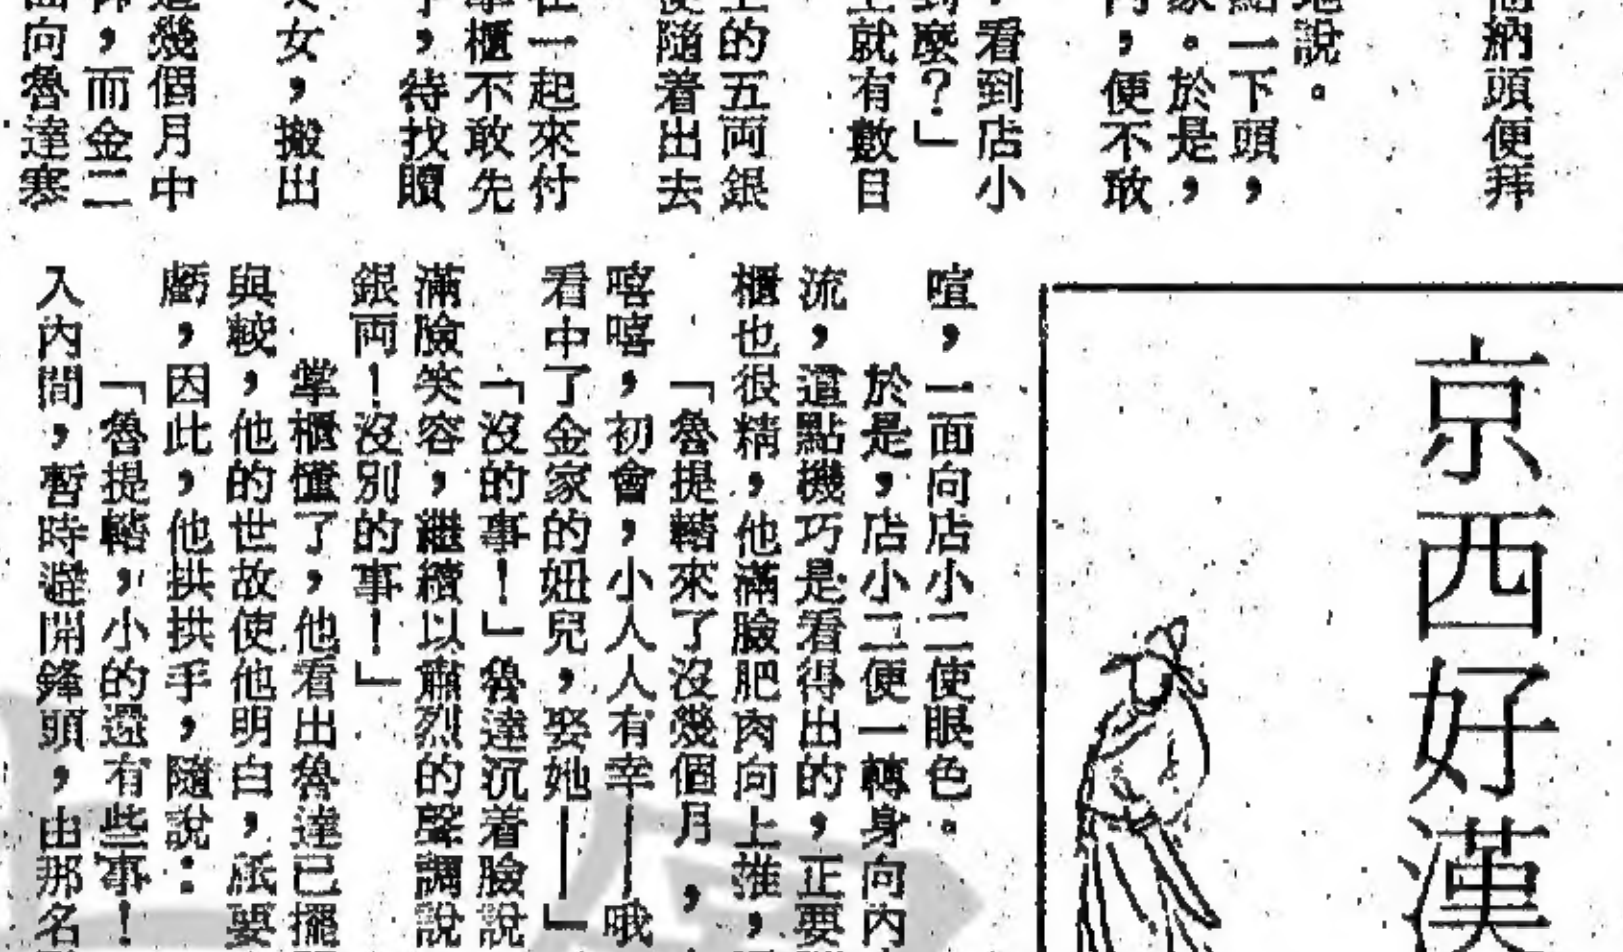 他納頭便拜
地說。
點一下頭，
家。於是，
內，便不敢
，看到店小
到麼？」
上就有數目
上的五両銀
便隨着出去
在一起來付
掌櫃不敢先
子，待找贖
女，搬出
這幾個月中
，而金二
面向魯達寒
京西好漢
喧，一面向店小二使眼色。
於是，店小二便一轉身向內
流，這點機巧是看得出的，正要
櫃也很精，他滿臉肥肉向上推，
「魯提轄來了沒幾個月，
嘻嘻，初會，小人人有幸——哦
看中了金家的妞兒，娶她——」
「沒的事！」魯達沉着臉說
滿臉笑容，繼續以肅烈的聲調說
銀両！沒別的事！」
掌櫃懂了，他看出魯達已擺
與較，他的世故使他明白，祇要
虧，因此，他拱拱手，隨說：
「魯提轄，小的還有些事！
入內間，暫時避開鋒頭，由那名